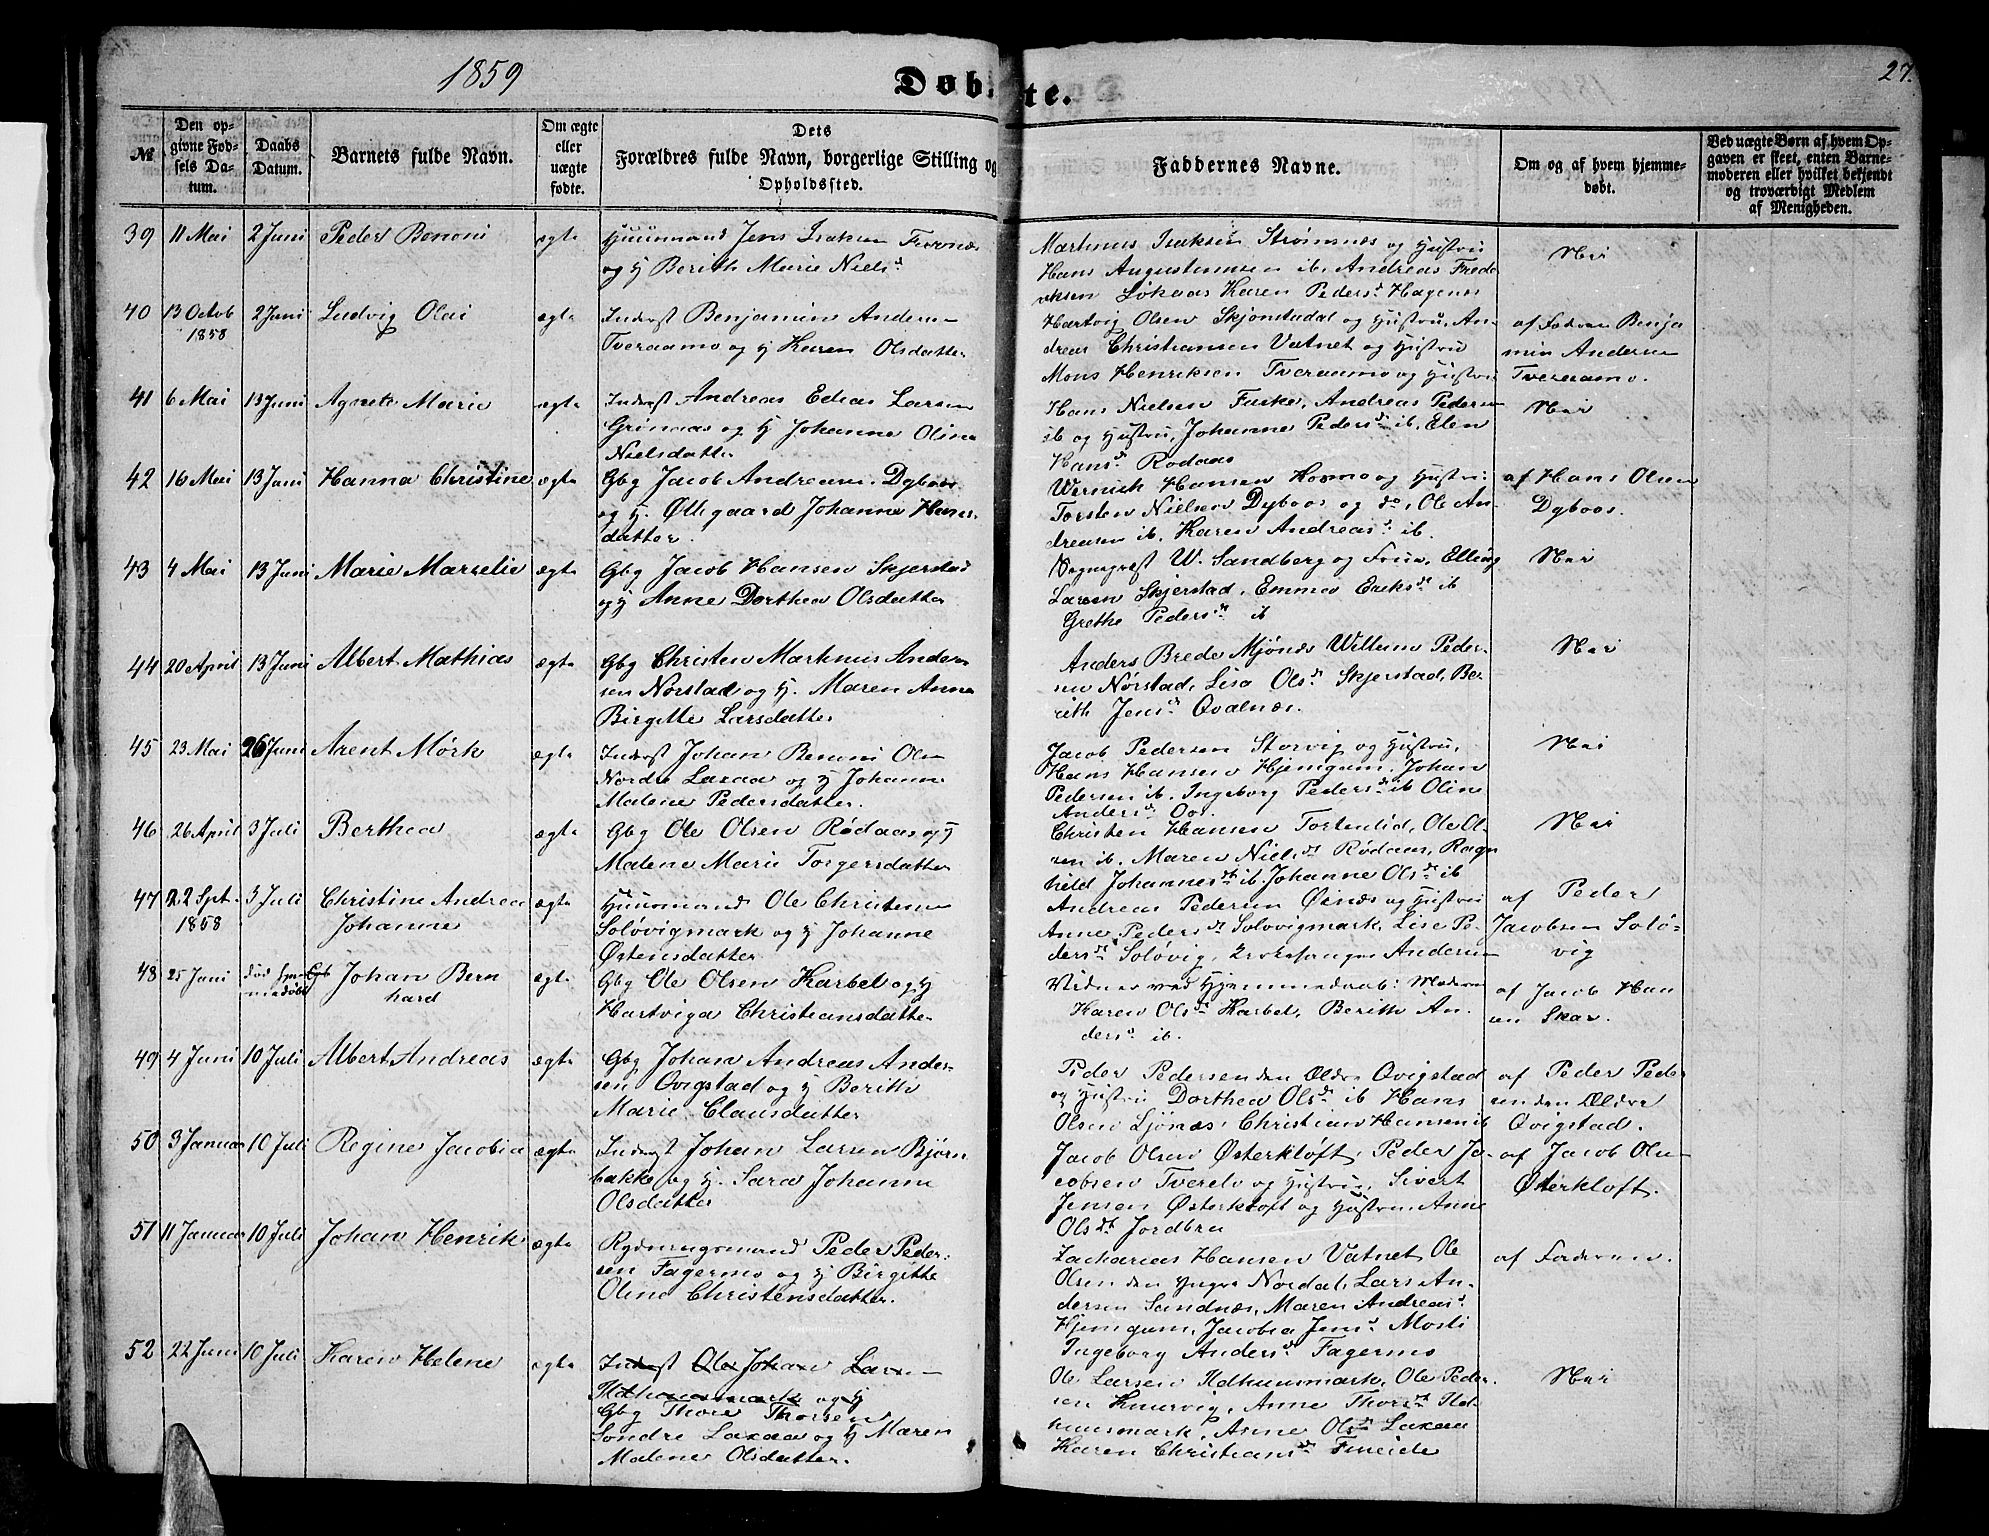 1859
Døbte.
27.
№
Den opgivne Fødsels Datum.
Daabs Datum.
Barnets fulde Navn.
Om ægte eller uægte fødte.
Dets Forældres fulde Navn, borgerlige Stilling og Opholdssted.
Faddernes Navne.
Om og af hvem hjemmedøbt.
Ved uægte Børn af hvem Opgaven er skeet, enten Barnemoderen eller hvilket bekjendt og troværdigt Medlem af Menigheden.
39 11 Mai 2 Juni Peder Bononi ægte Huusmand Jens Isaksen
og H Berith Marie Niels d
Martinus Isaksen Strømsnæs og Hustru
Hans Augustinussen ib, Andreas Frede
riksen Løkaas Karen Peders d Hagenæs
Nei
40 13 Octob 1858 2 Juni Ludvig Olai ægte Inderst Benjamin Andersen
Tveraamo og H Karen Olsdatter
Hartvig Olsen Skjønstadal og Hustru, An-
dreas Christiansen Vatnet og Hustru
Mons Henriksen Tveraamo og Hustru
af Faderen Benja
min Andersen
Tveraamo.
41 6 Mai 13 Juni Agnete Marie ægte Inderst Andreas Edias Larsen
Grønnæs og H Johanne Olina
Nielsdatter
Hans Nielsen Fuske, Andreas Pedersen
ib og Hustru, Johanne Peders d ib, Elen
Hans d Rødaas
Nei
42 16 Mai 13 Juni Hanna Christine ægte Gbg Jacob Andreasen Dybvos
og H. Øllegaard Johanna Hans-
datter.
Wernich Hansen Kosmo og Hustru
Torsten Nielsen Dybvos og do, Ole An-
dreasen ib, Karen Andreas d ib.
af Hans Olsen
Dybvos.
43 4 Mai 13 Juni Marie Marselie ægte Gbg Jacob Hansen Skjerstad
og H Anne Dorthea Olsdatter
Sognepræst W. Sandberg og Frue, Elling
Larsen Skjerstad, Emma Eriks d ib
Grethe Peders d ib
Nei
44 20 April 13 Juni Albert Mathias ægte Gbg Christen Martinus Ander
sen Nørstad og H. Maren Anna
Birgitte Larsdatter
Anders Brede Mjønes Willum Peder-
sen Nørstad, Lisa Ols d Skjerstad, Be-
rith Jens d Qvalnæs.
Nei
45 23 Mai 26 Juni Arent Mørk ægte Inderst Johan Benoni Olsen
Nordre Laxaa og H Johanne
Malene Pedersdatter.
Jacob Pedersen Storvig og Hustru,
Hans Hansen Hjemgam, Johan
Pedersen ib, Ingeborg Peders d ib Olin
Anders d Oos.
Nei
46 26 April 3 Juli Berthea ægte Gbg Ole Olsen Rødaas og H
Malene Marie Torgersdatter
Christen Hansen Tortenlid, Ole Ol-
sen ib, Maren Niels dt Rødaas, Ragn
hild Johannes dt ib, Johanne Ols dt ib
Nei
47 22 Sept. 1858 3 Juli Christine Andrea
Johanne ægte Huusmand Ole Christensen
Soløvigmark og H Johanne
Østensdatter
Andreas Pedersen Øinæs og Hustru
Anne Peders dt Soløvigmark, Lise Pe-
ders dt Soløvig, Andersen
af Peder
Jacobsen Solø-
vig
48 25 Juni død hjem-
medøbt Johan Bern
hard ægte Gbg Ole Olsen Karbel og H
Hartviga Christiansdatter
Vidner ved Hjemmedaab: Moderen
Karen Ols dt Karbel, Berith An-
ders d ib.
af Jacob Han
sen Skar.
49 4 Juni 10 Juli Albert Andreas ægte Gbg Johan Andreas Ander-
sen Qvigstad og H Berith
Marie Clausdatter
Peder Pedersen den Ældre Qvigstad
og Hustru Dorthea Ols d ib Hans
Olsen Ljønæs, Christian Hansen ib
af Peder Peder
sen den Ældre
Qvigstad.
50 3 Januar 10 Juli Regine Jacobia ægte Inderst Johan Larsen Bjørn
bakke og H. Sara Johanna
Olsdatter
Jacob Olsen Østerkløft, Peder Ja-
cobsen Tverelv og Hustru, Sivert
Jensen Østerkløft og Hustru, Anne
Ols dt Jordbru
af Jacob Olsen
Østerkløft.
51 11 Januar 10 Juli Johan Henrik ægte Rydningsmand Peder Peder-
sen Fagermo og H Birgitte
Olina Christensdatter.
Zacharias Hansen Vatnet Ole
Olsen den Yngre Nordal, Lars An-
dersen Sandnæs, Maren Andreas d
Hjemgam, Jacobia Jens d Mosti
Ingeborg Anders d Fagermo
af Faderen.
52 22 Juni 10 Juli Karen Helene ægte Inderst Ole Johan Larsen
og H
Gbg Thore Thorsen
Søndre Laxaa og H Maren
Malene Olsdatter.
Ole Larsen Ildhuusmark, Ole Peder-
sen Kinervig, Anne Thors dt Ild-
huusmark, Anne Ols dt Laxaa
Karen Christians dt Fineide
Nei